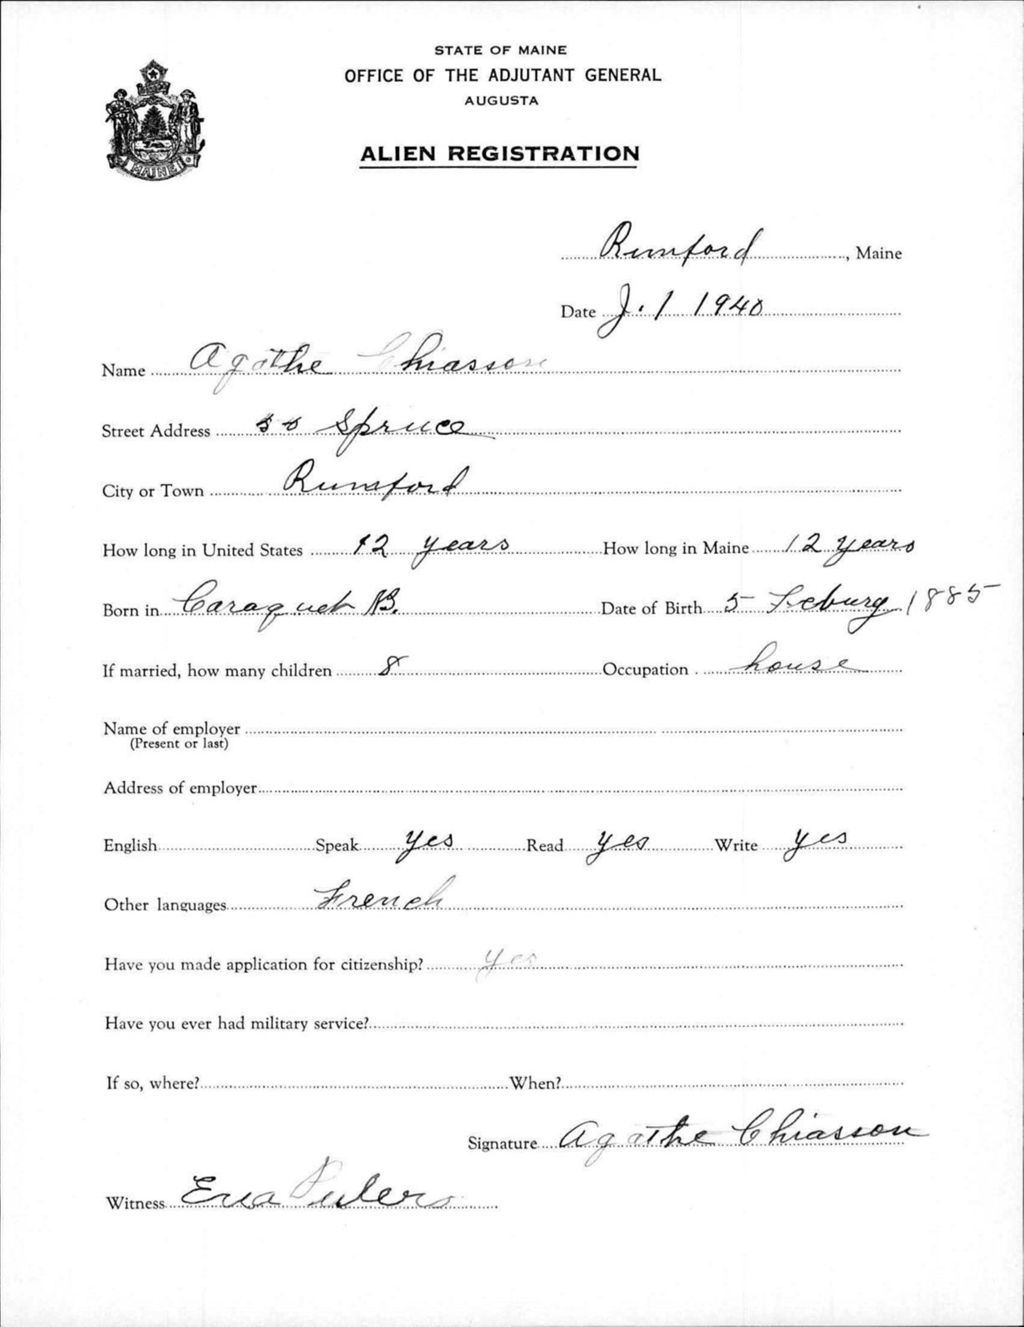 STATE OF MAINE
OFFICE OF THE ADJUTANT GENERAL
AUGUSTA
ALIEN REGISTRATION
MAINE
Rumford, Maine
Date J. 1 1940
Name Agathe Chiasson
Street Address Spruce
City or Town Rumford
How long in United States 12 years How long in Maine 12 years
Born in Caraquet N.B. Date of Birth 5 1885
If married, how many children 8 Occupation house
Name of employer
(Present or last)
Address of employer
English Speak yes Read yes Write yes
Other languages French
Have you made application for citizenship? yes
Have you ever had military service?
If so, where? When?
Signature Agathe Chiasson
Witness